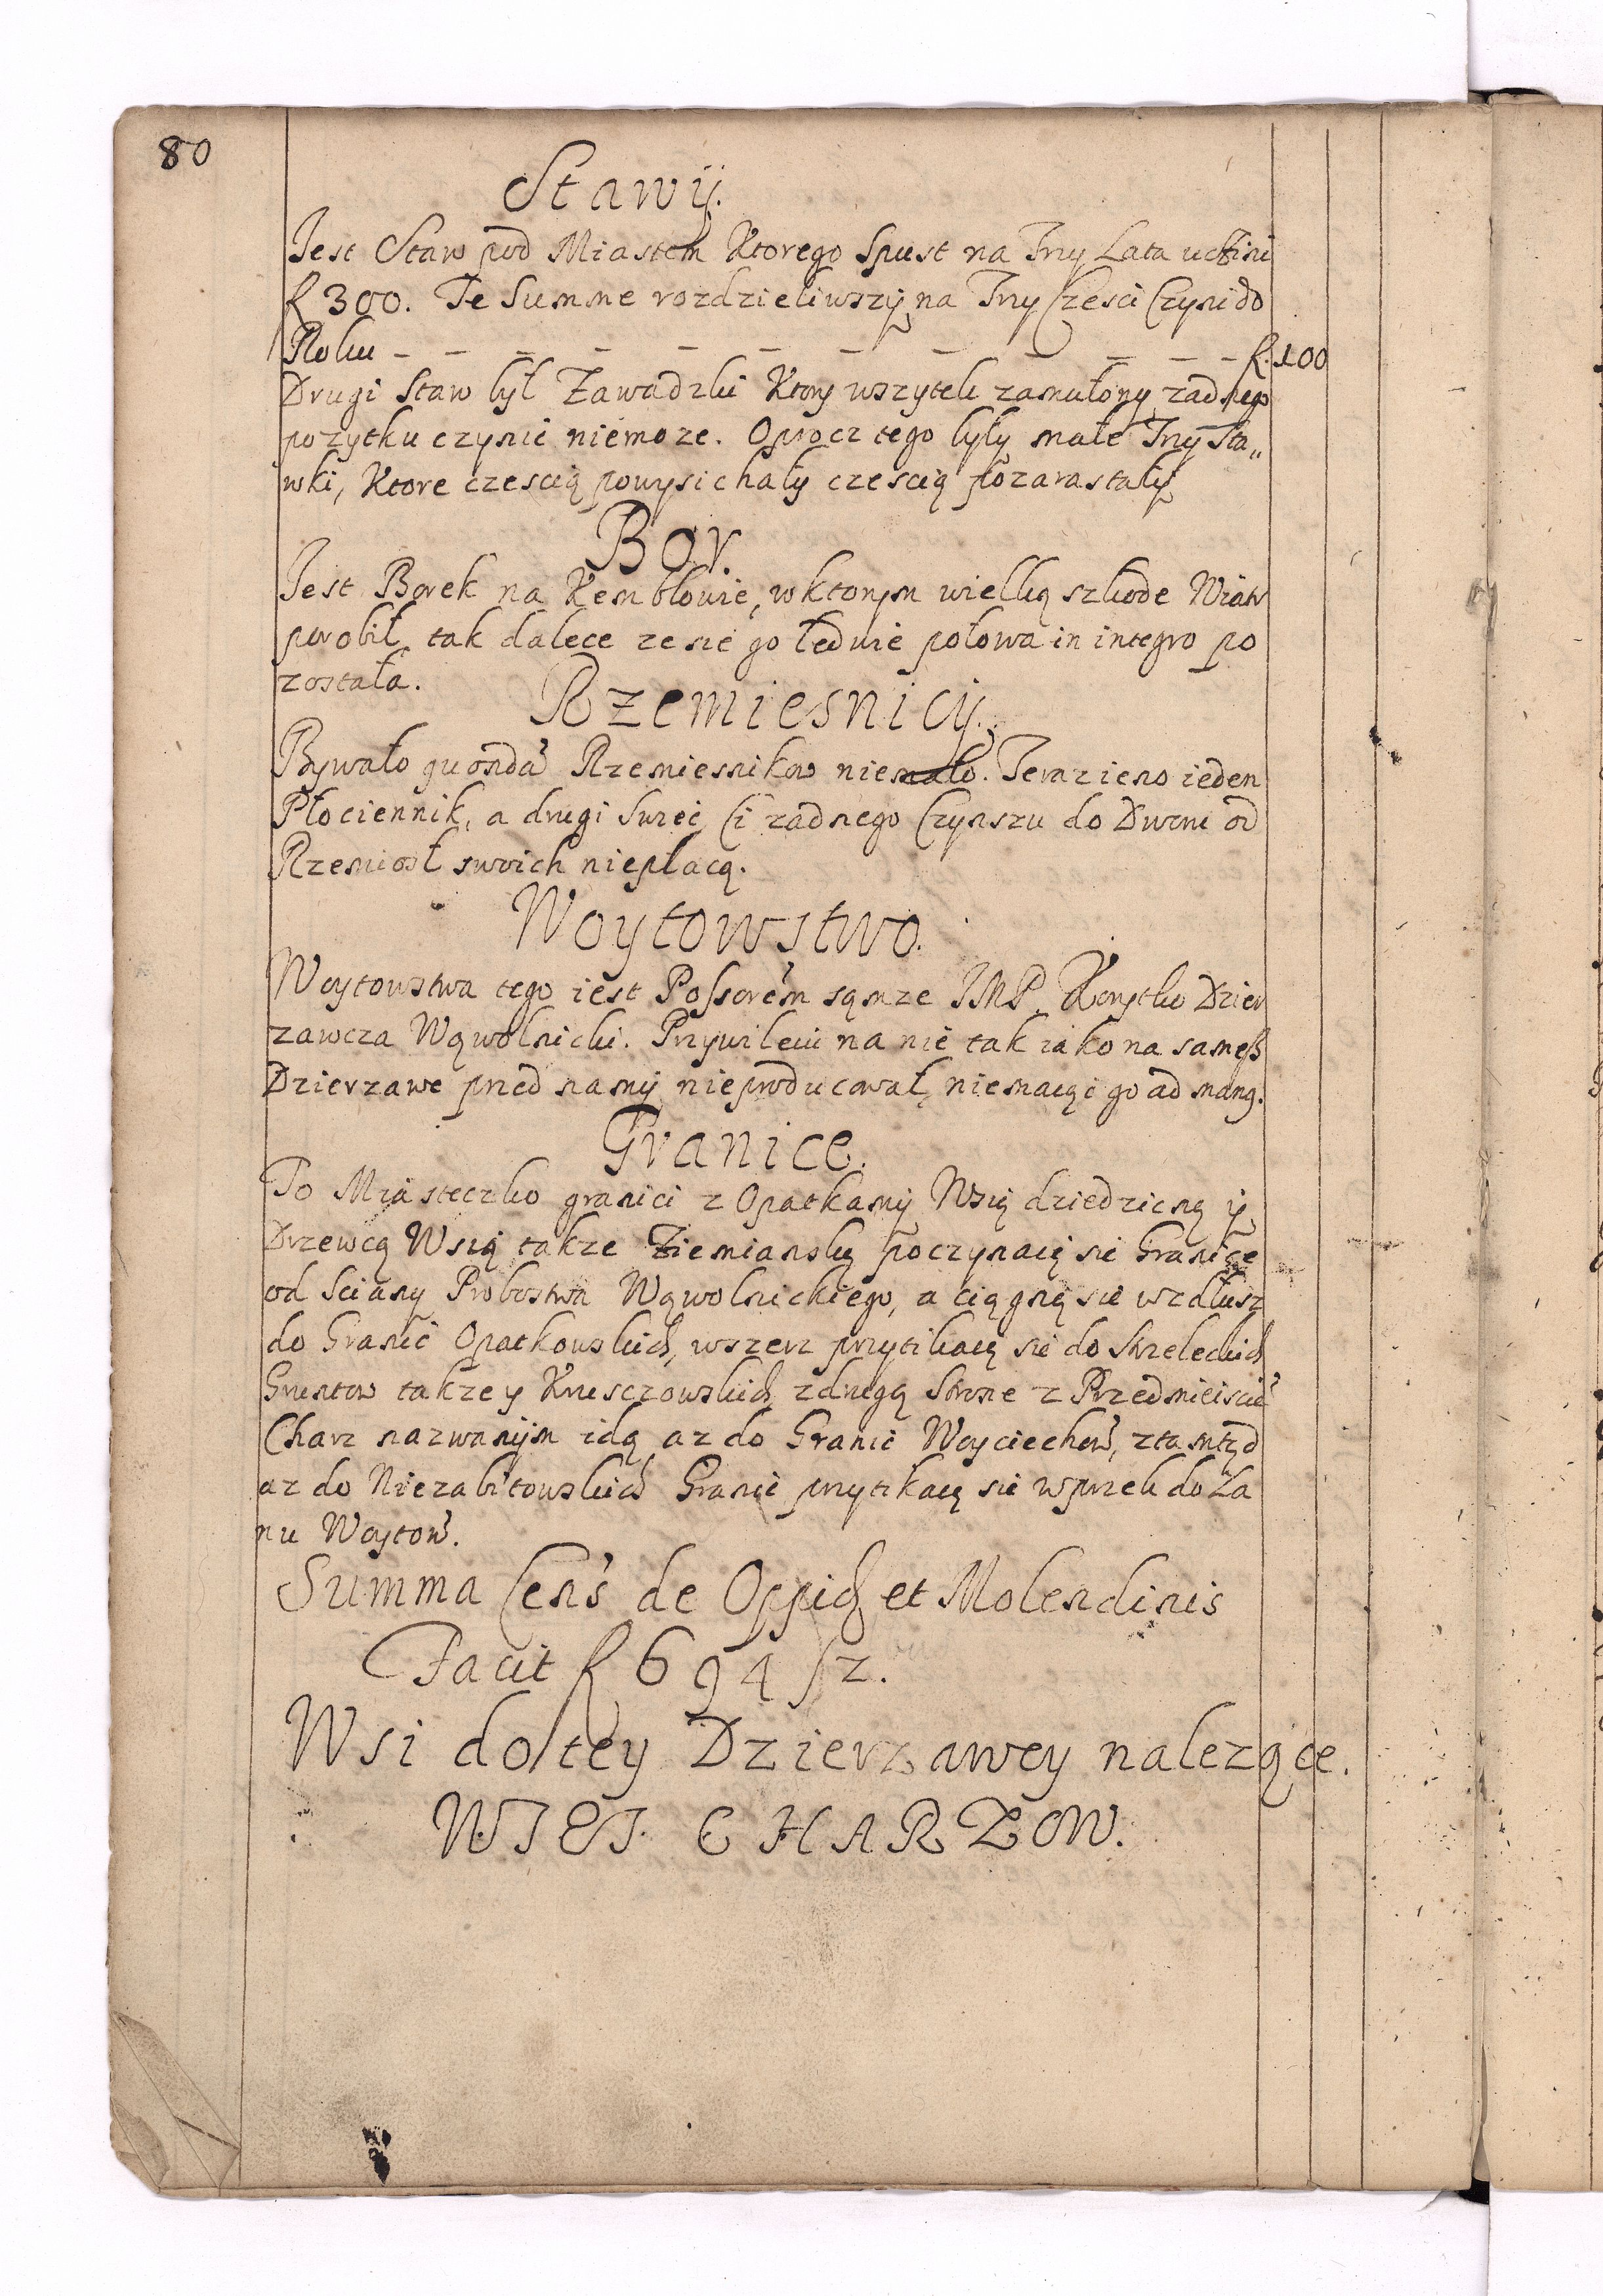 80
Stawÿ.
Jest Staw pod Miastem Ktorego Spust na Trzy Lata uczini
f 300. Te Summe rozdzieliwszÿ na Trzy Czesci Czyni do
Roku – – – – – – – – – – – f. 100
Drugi Staw był Zawadzki Ktory wszytek zamulony zadnego
pozytku czynic niemoze. Oprocz tego były małe Trzy Sta„
wki, Ktore czescią powysichały czescią pozarastały
Bor.
Jest Borek na Kembłowie, w ktorym wielką szkode Wiatr
porobił tak dalece ze sie go ledwie połowa in integro po
zostala.
Rzemiesnicÿ.
Bywało quondã Rzemiesnikow niemało. Teraz ieno ieden
Płociennik, a drugi Swiec Ci zadnego Czynszu do Dworu od
Rzemiosł swoich niepłacą.
Woytowstwo.
Woytowstwa tego iest Possorem sąmze JMP. Dzier
zawcza Wąwolnicki. Przywileiu na nie tak iako na samęß
Dzierzawe przed namÿ nieproducował, niemaiąc go ad mang.
Granice.
To Miasteczko granici z Opatkamÿ Wsią dziedzicną ÿ
Drzewcą Wsią takze Ziemianską poczynaią sie Granice
od Sciany Probostwa Wąwolnickiego, a ciągną sie wzdłusz
do Granic Opatkowskich, wszerz przytikaią sie do Strzeleckich
Gruntow takze y Krusczowskich z drugą Strone z Przedmieiscie
Charz nazwanÿm idą az do Granic Woyciechow, ztamtąd
az do Niezabitowskich Granic przytikaią sie wprzek do Ła
nu Woytow.
Summa Cens de Oppid et Molendinis
Facit f 694 / 2.
Wsi do tey Dzierzawey nalezące.
WIES CHARZOW.